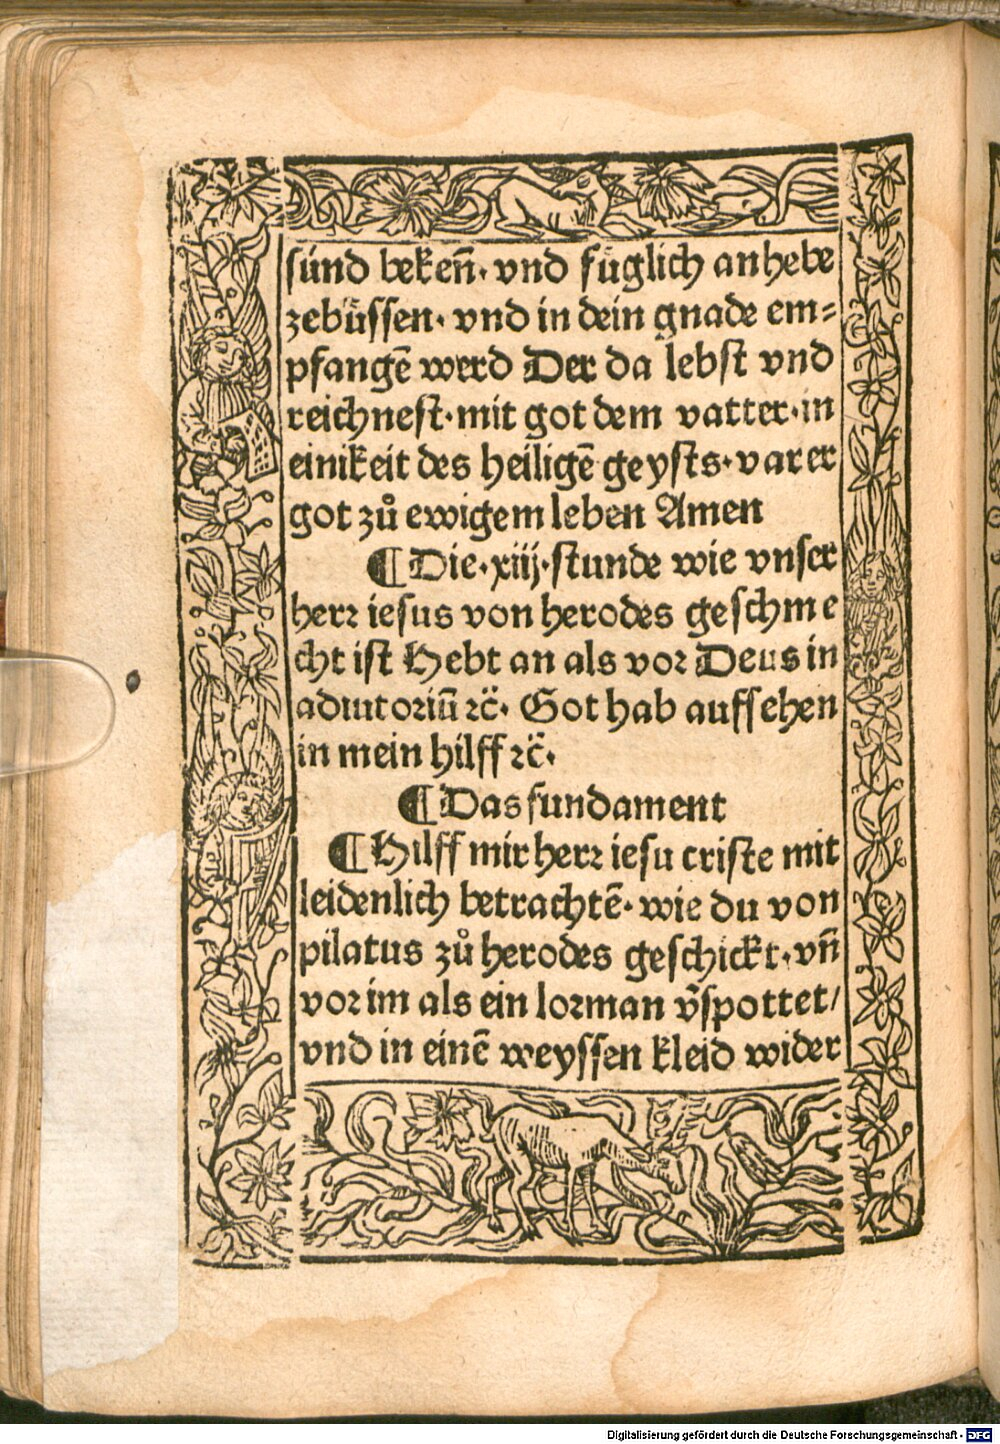 sünd bekeñ· vnd fuͤglich anhebe
zebuͤssen· vnd in dein gnade em⸗
pfangẽ werd Der da lebst vnd
reichnest·mit got dem vatter·in
einikeit des heiligẽ geysts·varer
got zů ewigem leben Amen
¶Die·xiij·stunde wie vnser
herꝛ iesus von herodes geschme
cht ist Hebt an als voꝛ Deus in
adiutoꝛiũ ⁊c̃· Got hab auffsehen
in mein hilff ⁊c̃·
¶Das fundament
¶Hilff mir herꝛ iesu criste mit
leidenlich betrachtẽ· wie du von
pilatus zů herodes geschickt·vñ
voꝛ im als ein loꝛman v̄spottet/
vnd in einẽ weyssen kleid wider
Digitalisierung gefördert durch die Deutsche Forschungsgemeinschaft - DFG